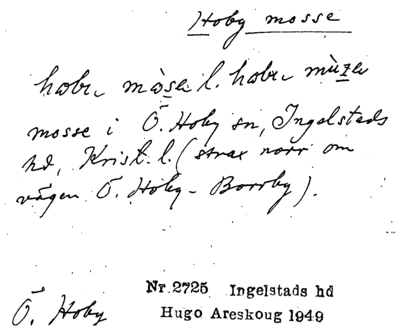 Hoby mosse
hobu måse l. hobu
mosse i Ö. Hoby sn, Ingelstads
hd, Krist. l. (strax norr om
vägen Ö. Hoby - Borrby).
Nr. 2725 Ingelstads hd
Ö. Hoby Hugo Areskoug 1949